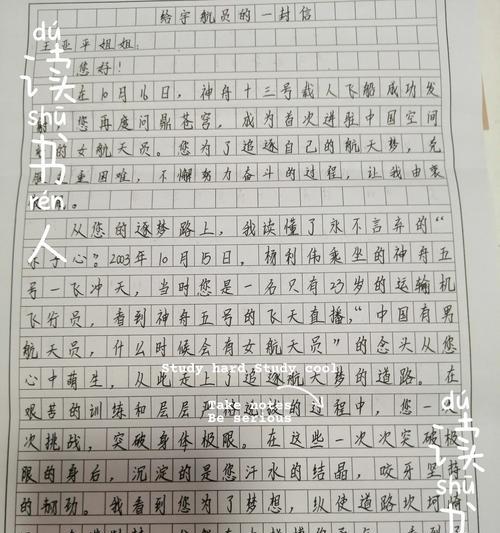 给宇航员的一封信
王亚平姐姐:
您好!
在10月16日,神舟十三号载人飞船成功发
您再度问鼎苍穹,成为首次进驻中国空间
的女航天员。您为了追逐自己的航天梦,克
重困难,不懈努力奋斗的过程,让我由衷
从您的逐梦路上,我读懂了永不言弃的“
心”。2003年10月15日,杨利伟乘坐的神舟五
号一飞冲天,当时您是一名只有23岁的运输机
飞行员,看到神舟五号的飞天直播,“中国有男
航天员,什么时候会有女航天员”的念头从您
心中萌生,从此走上了追逐航天梦的道路。在
艰苦的训练和层层的过程中,您一次
次挑战,突破身体极限。在这些一次次突破极
限的身后,沉淀的是您汗水的结晶,咬牙坚持
的韧劲。我看到您为了梦想,纵使道路坎坷崎
dú shū rén
读书人
Study hard Study cool
Take notes
Be serious
dú shū
读书